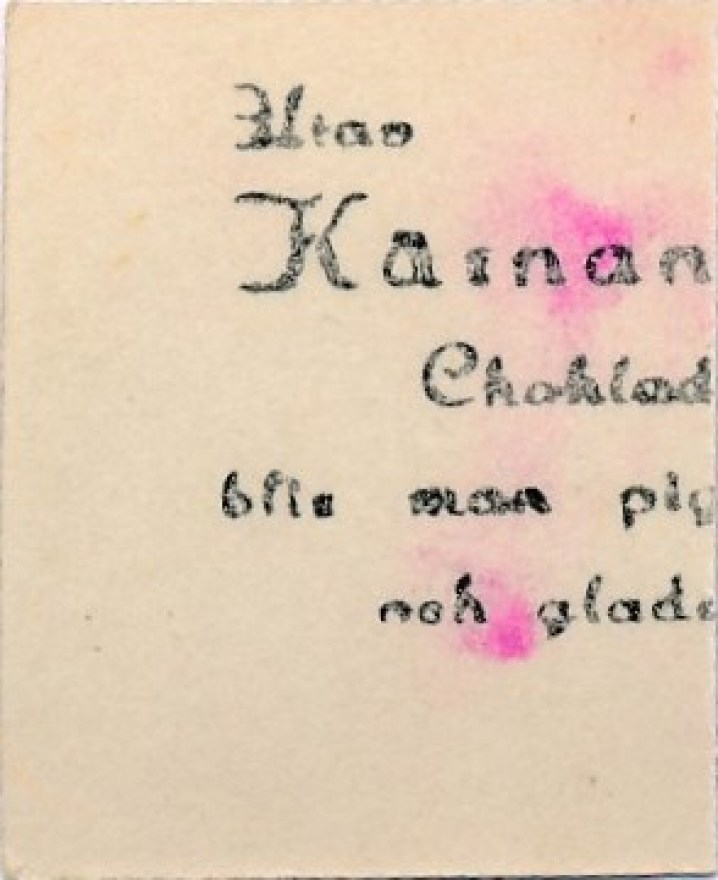 Utav
Kärnan
Choklad
blir man pig
och glada